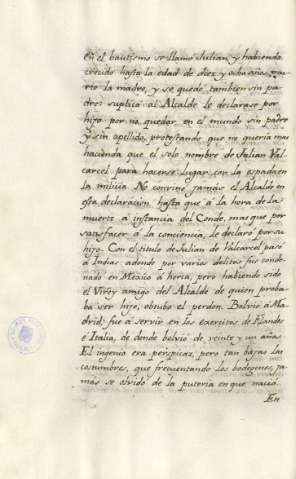 en el bautismo se llamó Julian, y habiendo
crecido hasta la edad de diez y ocho años, mu-
rio la madre, y se quedó tambien sin pa-
dre: suplicó al Alcalde le declarase por
hijo por no quedar en el mundo sin padre
y sin apellido, protestando que no queria mas
hacienda que el solo nombre de Julian Val-
carcel para hacerse lugar con la espada en
la milicia. No convino jamás el Alcalde en
esta declaración hasta que á la hora de la
muerte á instancia del Conde, mas que por
satisfacer á la conciencia, le declaró por su
hijo. Con el titulo de Julian de Valcarcel pasó
á Indias adonde por varios delitos fue conde-
nado en Mexico á horca, pero habiendo sido
el Virey amigo del Alcalde de quien proba-
ba ser hijo, obtubo el perdon. Bolvió á Ma-
drid; fue á servir en los exercitos de Flandes
é Italia, de donde bolvió de veinte y un años.
El ingenio era perspicaz, pero tan bajas las
costumbres, que frecuentando los bodegones, ja-
mas se olvidó de la puteria en que nació.
En